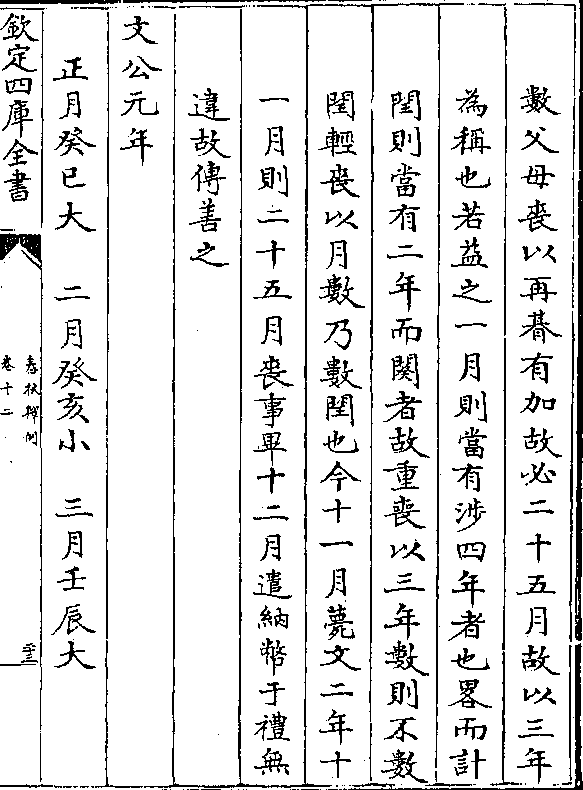 數父母喪以再朞有加故必二十五月故以三年
為稱也若益之一月則當有涉四年者也畧而計
閏則當有二年而闋者故重喪以三年數則不數
閏輕喪以月數乃數閏也今十一月薨文二年十
一月則二十五月喪事畢十二月遣納幣于禮無
違故傳善之
文公元年
正月癸巳大　二月癸亥小　三月壬辰大
欽定四庫全書
春秋釋例
卷十二
二十三